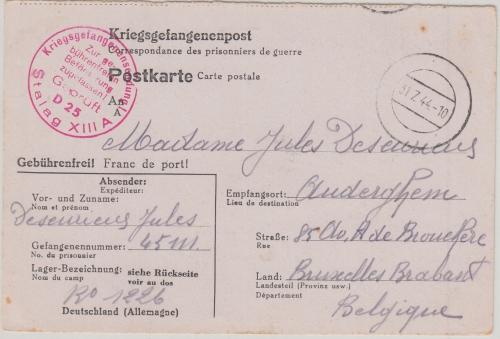 Kriegsgefangenenpost
Correspondance des prisonniers de guerre
Postkarte Carte postale
An
A
Kriegsgefangenensendung!
Zur ge-
bührenfreien
Beförderung
zugelassen!
Geprüft
D 25
Stalag XIII A
31.7.44-10
Madame Jules
Gebührenfrei! Franc de port!
Absender:
Expéditeur:
Vor- und Zuname:
Nom et prénom
Jules
Gefangenennummer: 45111.
No. du prisonnier
Lager-Bezeichnung: siehe Rückseite
Nom du camp voir au dos
1226
Deutschland (Allemagne)
Empfangsort: Auderghem
Lieu de destination
Straße: 85 A de Brouckère
Rue
Land: Bruxelles Brabant
Landesteil (Provinz usw.)
Département
Belgique